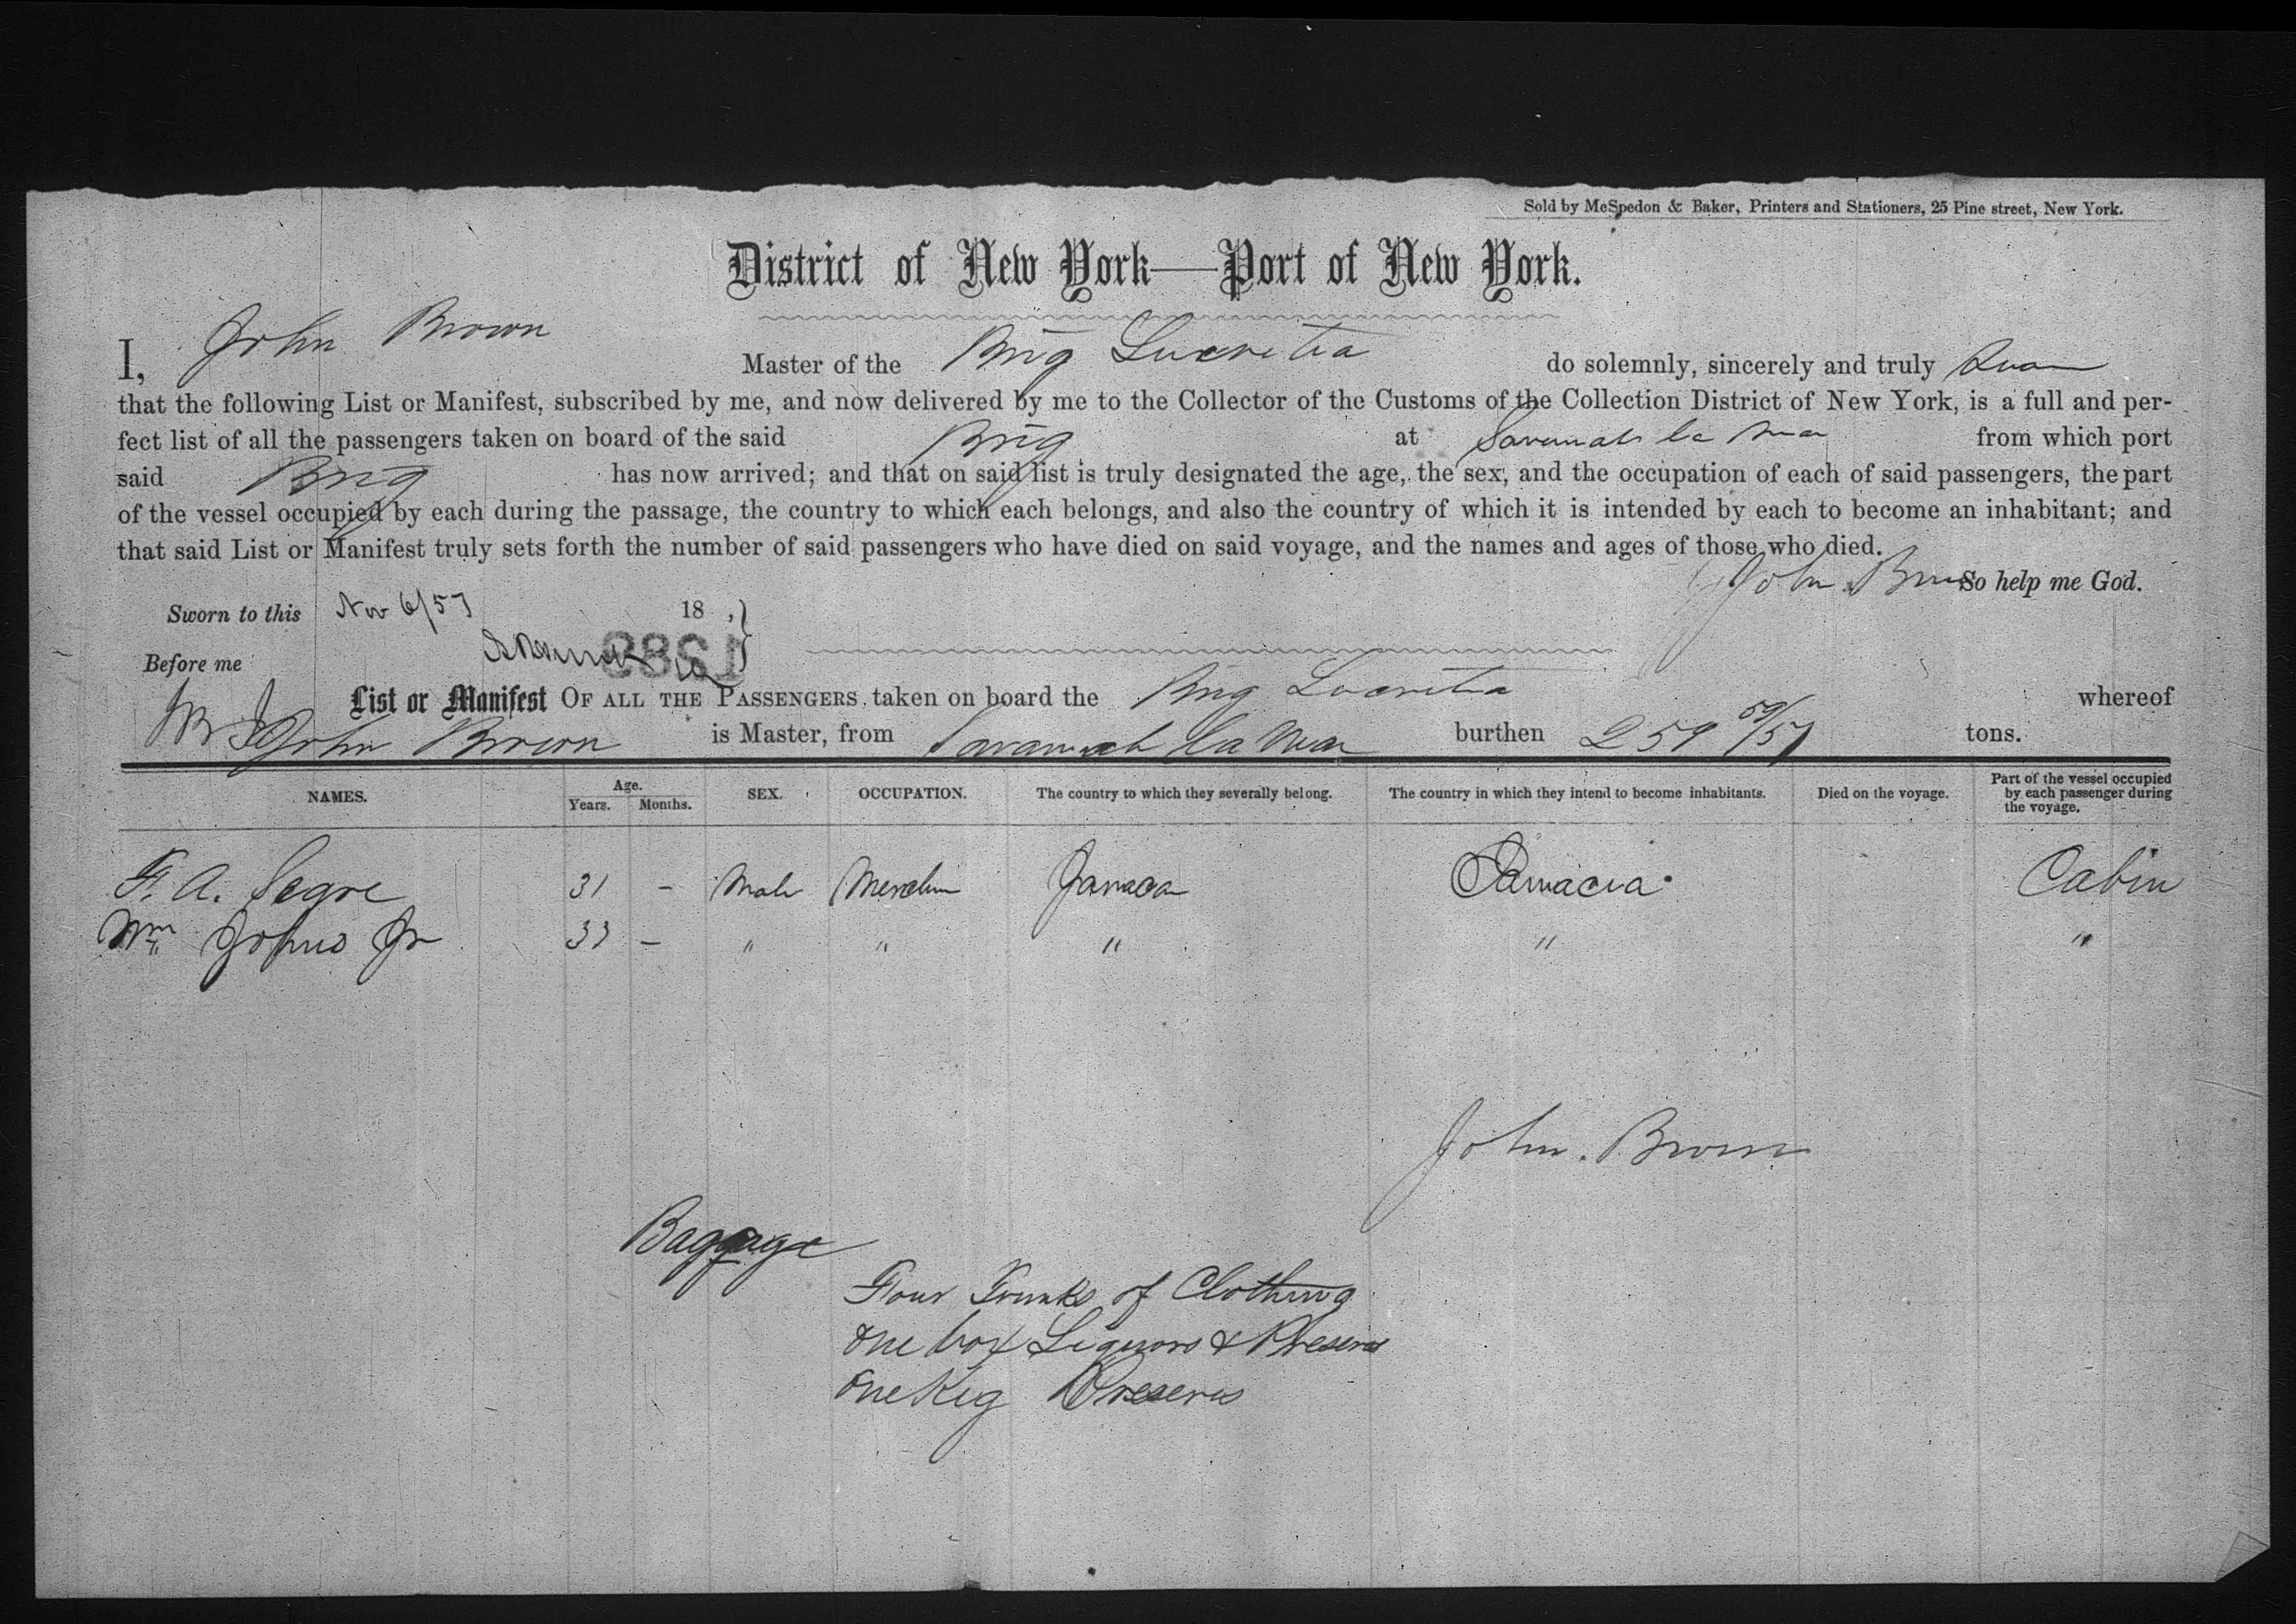 Sold by McSpedon & Baker, Printers and Stationers, 25 Pine street, New York.
District of New York—Port of New York.
I, John Brown Master of the Brig Lucretia do solemnly, sincerely and truly
that the following List or Manifest, subscribed by me, and now delivered by me to the Collector of the Customs of the Collection District of New York, is a full and per-
fect list of all the passengers taken on board of the said Brig at Savannah la Mar from which port
said Brig has now arrived; and that on said list is truly designated the age, the sex, and the occupation of each of said passengers, the part
of the vessel occupied by each during the passage, the country to which each belongs, and also the country of which it is intended by each to become an inhabitant; and
that said List or Manifest truly sets forth the number of said passengers who have died on said voyage, and the names and ages of those who died.
John Brown So help me God.
Sworn to this Nov 6/57 18 ,
Before me
List or Manifest OF ALL THE PASSENGERS taken on board the Brig Lucretia whereof
John Brown is Master, from Savannah la Mar burthen 259 tons.
NAMES. Age. Years. Months. SEX. OCCUPATION. The country to which they severally belong. The country in which they intend to become inhabitants. Died on the voyage. Part of the vessel occupied by each passenger during the voyage.
F. A. Segre 31 - Male Merchn Jamaca Jamacia Cabin
Wm Johns Jr 33 - " " " " "
John. Brown
Baggage
Four Trunks of Clothing
One box Liquors & Preserves
One Keg Preserves